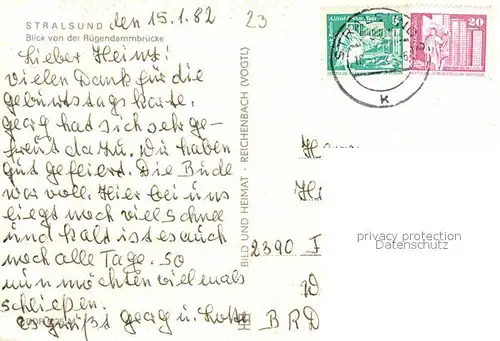 STRALSUND
Blick von der Rügendammbrücke
den 15.1.82
23
Lieber Heinz!
Vielen Dank für die
Geburtstagskarte.
Georg hat sich sehr ge-
freut dazu. Wir haben
gut gefeiert. Die Bude
war voll. Hier bei uns
liegt noch viel Schnee
und kalt ist es auch
noch alle Tage. So
nun möchten vielmals
schließen.
es grüßt Georg u. Lotte
BILD UND HEIMAT · REICHENBACH (VOGTL)
20
K
H
Hi
2390 F
W
BRD
privacy protection
Datenschutz